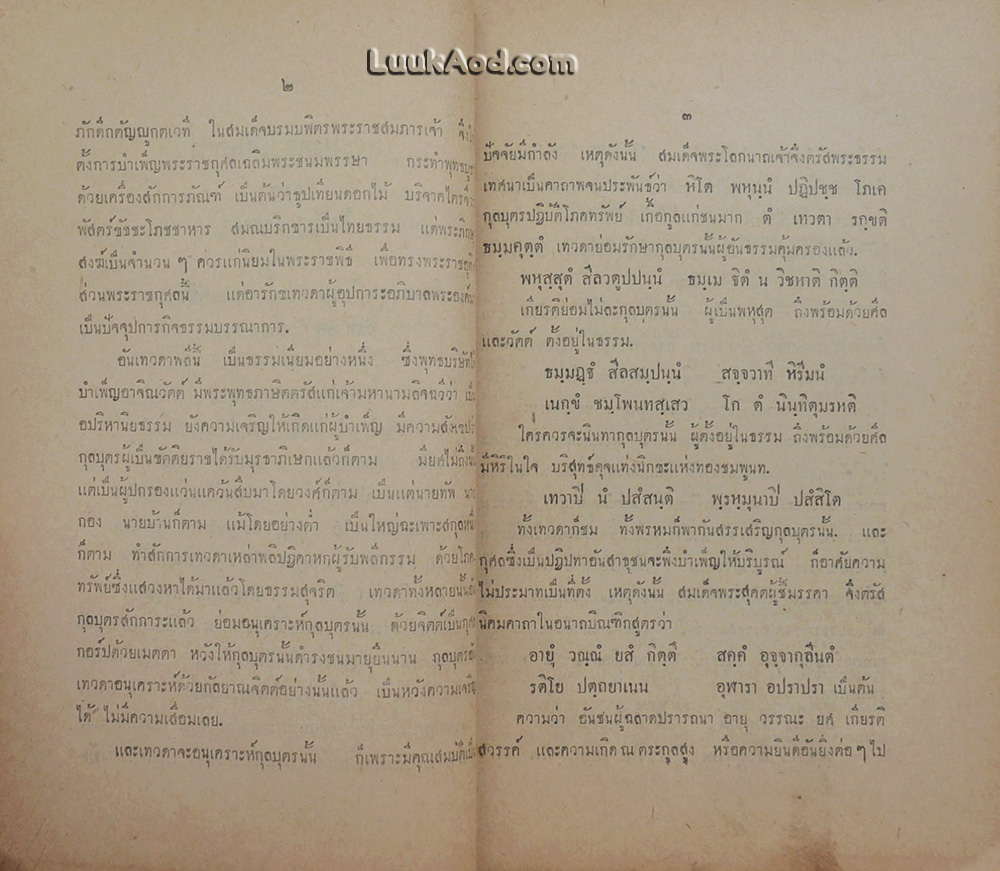 LuukAod.com
๒
ภักดีกตัญญูกตเวที ในสมเด็จบรมบพิตรพระราชสมภารเจ้า จึ่งได้
ตั้งการบำเพ็ญพระราชกุศลเฉลิมพระชนมพรรษา กระทำพุทธบู
ด้วยเครื่องสักการภัณฑ์ เป็นต้นว่าธูปเทียนดอกไม้ บริจาคไตรจี
พัสตร์ขัชชะโภชชาหาร สมณบริกขารเป็นไทยธรรม แด่พระภิกษุ
สงฆ์เป็นจำนวน ๆ ควรแก่นิยมในพระราชพิธี เพื่อทรงพระราชอุทิ
ส่วนพระราชกุศลนี้ แด่อารักขเทวดาผู้อุปการะอภิบาลพระองค์
เป็นปัจจุปการกิจธรรมบรรณาการ.
อันเทวดาพลีนี้ เป็นธรรมเนียมอย่างหนึ่ง ซึ่งพุทธบริษัทได้
บำเพ็ญอาจิณวัตต์ มีพระพุทธภาษิตตรัสแก่เจ้ามหานามลิจฉวีว่า เป็
อปริหานิยธรรม ยังความเจริญให้เกิดแก่ผู้บำเพ็ญ มีความสังเขป
กุลบุตรผู้เป็นขัตติยราชได้รับมุรธาภิเษกแล้วก็ตาม มียศไม่ถึง
แต่เป็นผู้ปกรองแว่นแคว้นสืบมาโดยวงศ์ก็ตาม เป็นแต่นายทัพ นาย
กอง นายบ้านก็ตาม แม้โดยอย่างต่ำ เป็นใหญ่ฉะเพาะสกุลหนึ่
ก็ตาม ทำสักการเทวดาเหล่าพลิปฏิคาหกผู้รับพลีกรรม ด้วยโภค
ทรัพย์ซึ่งแสวงหาได้มาแล้วโดยธรรมสุจริต เทวดาทั้งหลายนั้นอัน
กุลบุตรสักการะแล้ว ย่อมอนุเคราะห์กุลบุตรนั้น ด้วยจิตต์เป็นกุศล
กอร์ปด้วยเมตตา หวังให้กุลบุตรนั้นดำรงชนมายุยืนนาน กุลบุตรอั
เทวดาอนุเคราะห์ด้วยกัลยาณจิตต์อย่างนั้นแล้ว เป็นหวังความเจริญ
ได้ ไม่มีความเสื่อมเลย.
และเทวดาจะอนุเคราะห์กุลบุตรนั้น ก็เพราะมีคุณสมบัติเป็
๓
ปัจจัยมีกำลัง เหตุดังนั้น สมเด็จพระโลกนาถเจ้าจึงตรัสพระธรรม
เทศนาเป็นคาถาพจนประพันธ์ว่า หิโต พหุนฺนํ ปฏิปชฺช โภเค
กุลบุตรปฏิบัติโภคทรัพย์ เกื้อกูลแก่ชนมาก ตํ เทวตา รกฺขติ
ธมฺมคุตฺตํ เทวดาย่อมรักษากุลบุตรนั้นผู้อันธรรมคุ้มครองแล้ว.
พหุสฺสุตํ สีลวตูปปนฺนํ ธมฺเม ฐิตํ น วิชหาติ กิตฺติ
เกียรติย่อมไม่ละกุลบุตรนั้น ผู้เป็นพหุสุต ถึงพร้อมด้วยศีล
และวัตต์ ตั้งอยู่ในธรรม.
ธมฺมฏฺฐํ สีลสมฺปนฺนํ สจฺจวาทึ หิริมนํ
เนกฺขํ ชมฺโพนทสฺเสว โก ตํ นินฺทิตุมรหติ
ใครควรจะนินทากุลบุตรนั้น ผู้ตั้งอยู่ในธรรม ถึงพร้อมด้วยศีล
มีหิริในใจ บริสุทธ์ดุจแท่งนิกขะแห่งทองชมพูนท.
เทวาปิ นํ ปสํสนฺติ พฺรหฺมุนาปิ ปสํสิโต
ทั้งเทวดาก็ชม ทั้งพรหมก็พากันสรรเสริญกุลบุตรนั้น. และ
กุศลซึ่งเป็นปฏิปทาอันสาธุชนจะพึงบำเพ็ญให้บริบูรณ์ ก็อาศัยความ
ไม่ประมาทเป็นที่ตั้ง เหตุดังนั้น สมเด็จพระสุคตผู้ชี้มรรคา จึงตรัส
นิคมคาถาในอนาถบิณฑิกสูตรว่า
อายุํ วณฺณํ ยสํ กิตฺตึ สคฺคํ อุจฺจากุลีนตํ
รติโย ปตฺถยาเนน อุฬารา อปราปรา เป็นต้น
ความว่า อันชนผู้ฉลาดปรารถนา อายุ วรรณะ ยศ เกียรติ
สวรรค์ และความเกิด ณ ตระกูลสูง หรือความยินดีอันยิ่งต่อ ๆ ไป